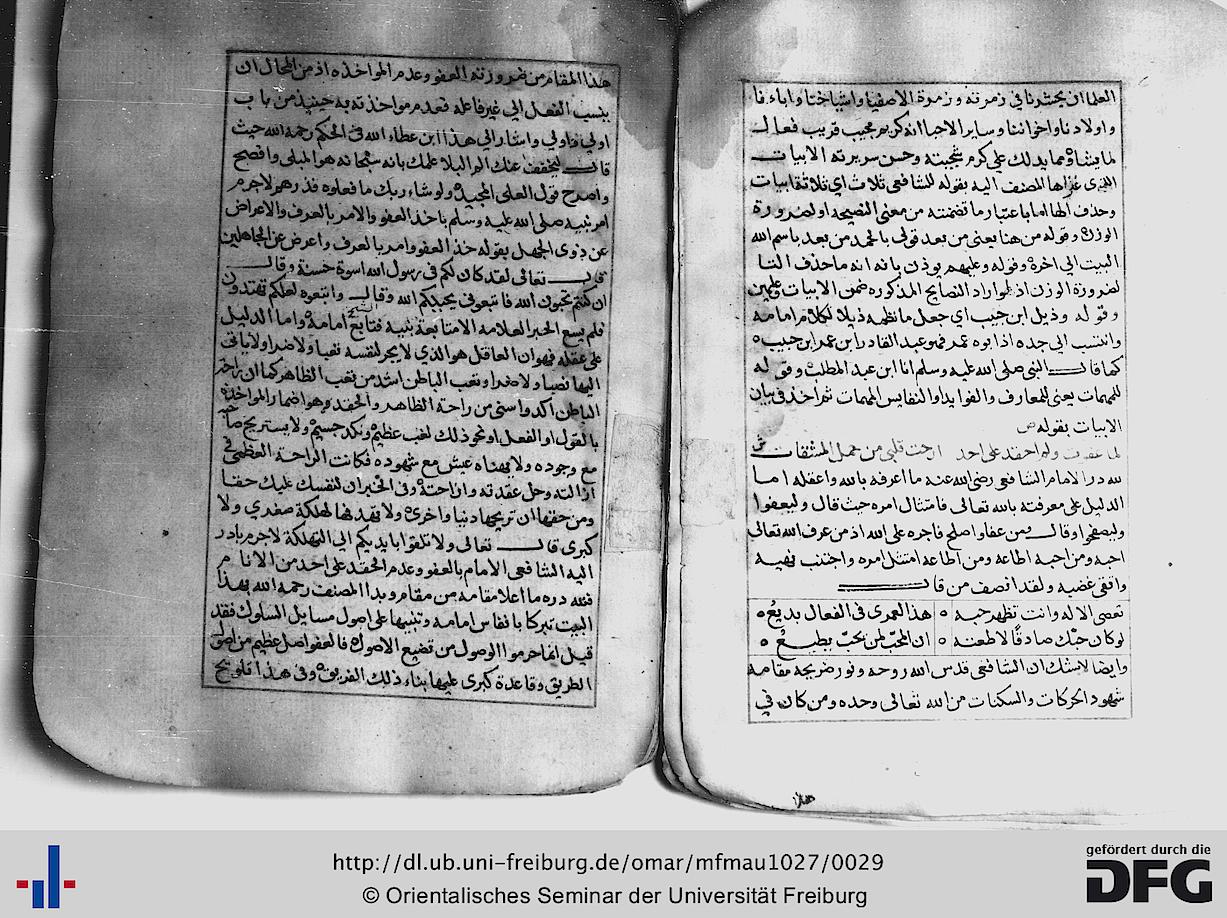 العلما ان يحشرنا في زمرته وزمرة الاصفيا واشياخنا واباءنا
واولادنا واخواننا وساير الاحبا انه كريم مجيب قريب فعال
لما يشاء ومما يدلك علي كرم سجيته وحسن سريرته الابيات
الذي عزاها المصنف اليه بقوله للشافعي ثلاث اي ثلاثة ابيات
وحذف الها اما باعتبار ما تضمنته من معني النصيحه او لضرورة
الوزن وقوله من هنا يعني من بعد قولي بالحمد من بعد باسم الله
البيت الي اخره وقوله وعليهم يوذن بانه انه ما حذف التا
لضرورة الوزن اذ لو اراد النصايح المذكوره ضمن الابيات
وقوله وذيل ابن حبيب اي جعل ما نظمه ذيلا لكلام امامه
وانتسب الي جده اذ ابوه عمر فهو عبد القادر ابن عمر ابن حبيب
كما قال النبي صلي الله عليه وسلم انا ابن عبد المطلب وقوله
للمهمات يعني للمعارف والفوايد او النفايس المهمات ثم اخذ في بيان
الابيات بقوله ص
لما عفوت ولم احقد علي احد ارحت قلبي من حمل المشقات ش
لله در الامام الشافعي رضي الله عنه ما اعرفه بالله واعقله اما
الدليل علي معرفته بالله تعالي فامتثال امره حيث قال وليعفوا
وليصفحوا وقال فمن عفا واصلح فاجره علي الله اذ من عرف الله تعالي
احبه ومن احبه اطاعه ومن اطاعه امتثل امره واجتنب نهيه
واتقي غضبه ولقد انصف من قال
تعصي الاله وانت تظهر حبه هذا لعمري في الفعال بديع
لو كان حبك صادقا لاطعته ان المحب لمن يحب يطيع
وايضا لا شك ان الشافعي قدس الله روحه ونور ضريحه مقامه
شهود الحركات والسكنات من الله تعالي وحده ومن كان في
هذا
هذا المقام من ضرورته العفو وعدم المواخذه اذ من المحال ان
ينسب الفعل الي غير فاعله فعدم مواخذته به حينيذ من باب
اولي واولي واشار الي هذا ابن عطاء الله في الحكم رحمه الله حيث
قال ليخفف عنك الم البلا علمك بانه سبحانه هو المبلي وافصح
واصرح قول العلي المجيد ولو شاء ربك ما فعلوه فذرهم لا جرم
امر نبيه صلي الله عليه وسلم باخذ العفو والامر بالعرف والاعراض
عن ذوي الجهل بقوله خذ العفو وامر بالعرف واعرض عن الجاهلين
قال تعالي لقد كان لكم في رسول الله اسوة حسنة وقال
ان كنتم تحبون الله فاتبعوني يحببكم الله وقال واتبعوه لعلكم تهتدون
فلم يسع الحبر العلامه الا متابعة نبيه فتابع الشيخ امامه واما الدليل
علي عقله فهو ان العاقل هو الذي لا يجر لنفسه تعبا ولا ضرا ولا ياتي
اليها نصبا ولا ضرا وتعب الباطن اشد من تعب الظاهر كما ان راحة
الباطن اكد واسني من راحة الظاهر والحقد وهو اضمار المواخذه
بالقول او الفعل او نحو ذلك لتعب عظيم ونكد جسيم ولا يستريح صاحبه
مع وجوده ولا يهناه عيش مع شهوده فكانت الراحة العظمي في
ازالته وحل عقدته وازاحته وفي الخبر ان لنفسك عليك حقا
ومن حقها ان تريحها دنيا واخري ولا تقيدها لهلكة صغري ولا
كبري قال تعالي ولا تلقوا بايديكم الي التهلكة لا جرم بادر
اليه الشافعي الامام بالعفو وعدم الحقد علي احد من الانام
فلله دره ما اعلا مقامه من مقام وبدا المصنف رحمه الله بهذا
البيت تبركا بانفاس امامه وتنبيها علي اصول مسايل السلوك فقد
قيل انما حرموا الوصول من تضييع الاصول فالعفو اصل عظيم من اصول
الطريق وقاعدة كبري عليها بناء ذلك الفريق وفي هذا تلويح
http://dl.ub.uni-freiburg.de/omar/mfmau1027/0029
© Orientalisches Seminar der Universität Freiburg
gefördert durch die
DFG